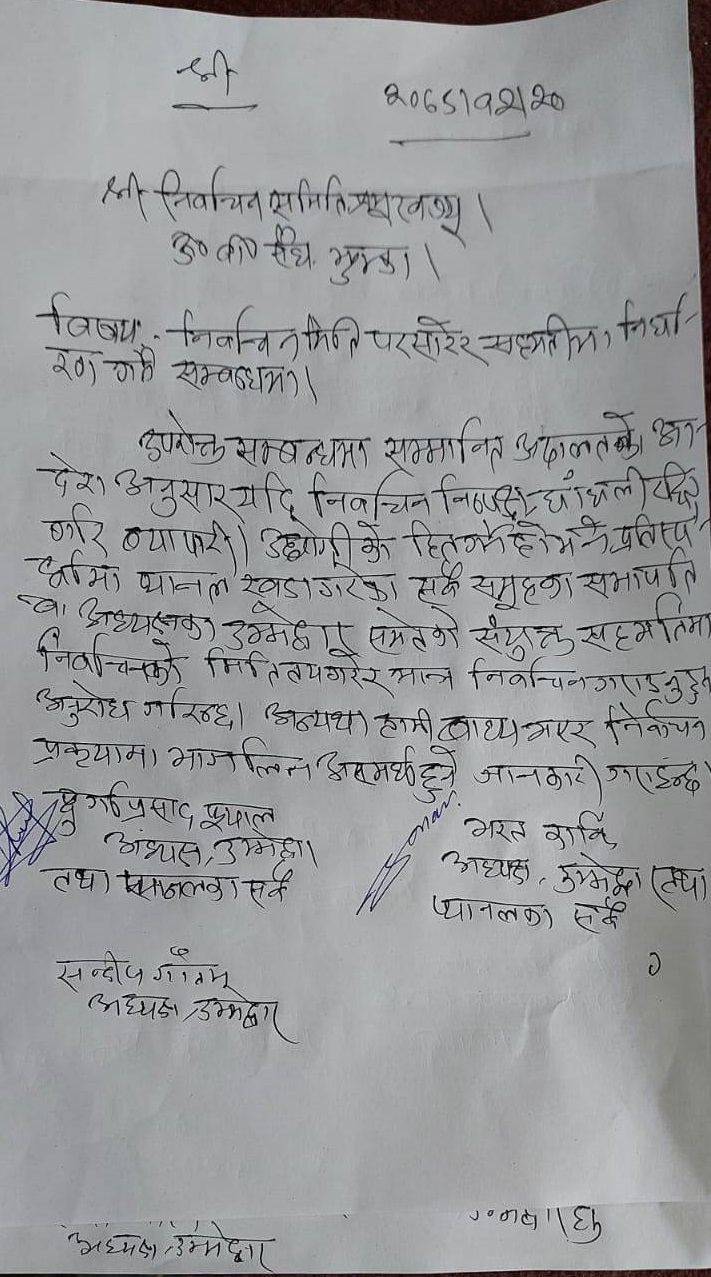 श्री
२०७८।१२।२०
श्री निर्वाचन समितिज्यू
उ० वा० संघ
विषय:- निर्वाचन मिति परसारेर सहमतीमा निर्धा-
रण गर्ने सम्बन्धमा।
उपरोक्त सम्बन्धमा सम्मानित अदालतको आ-
देश अनुसार यदि निर्वाचन निष्पक्ष, धाँधली रहित
गरि व्यापारी। उद्योगीको हित गर्ने हो भने प्रतिस्प-
र्धामा प्यानल खडा गरेका सबै समूहका सभापति
वा अध्यक्षका उम्मेद्वार समेतको संयुक्त सहमतिमा
निर्वाचनको मिति तय गरेर मात्र निर्वाचन गराउनुहुन
अनुरोध गरिन्छ। अन्यथा हामी बाध्य भएर निर्वाचन
प्रक्रयामा भागलिन असमर्थ हुने जानकारी गराइन्छ।
प्रसाद फुयाल
अध्यक्ष, उम्मेद्वार
तथा प्यानलका सबै
भरत कार्कि
अध्यक्ष, उम्मेद्वार तथा
प्यानलका सबै
सन्दीप गौतम
अध्यक्ष, उम्मेद्वार
अध्यक्ष, उम्मेद्वार